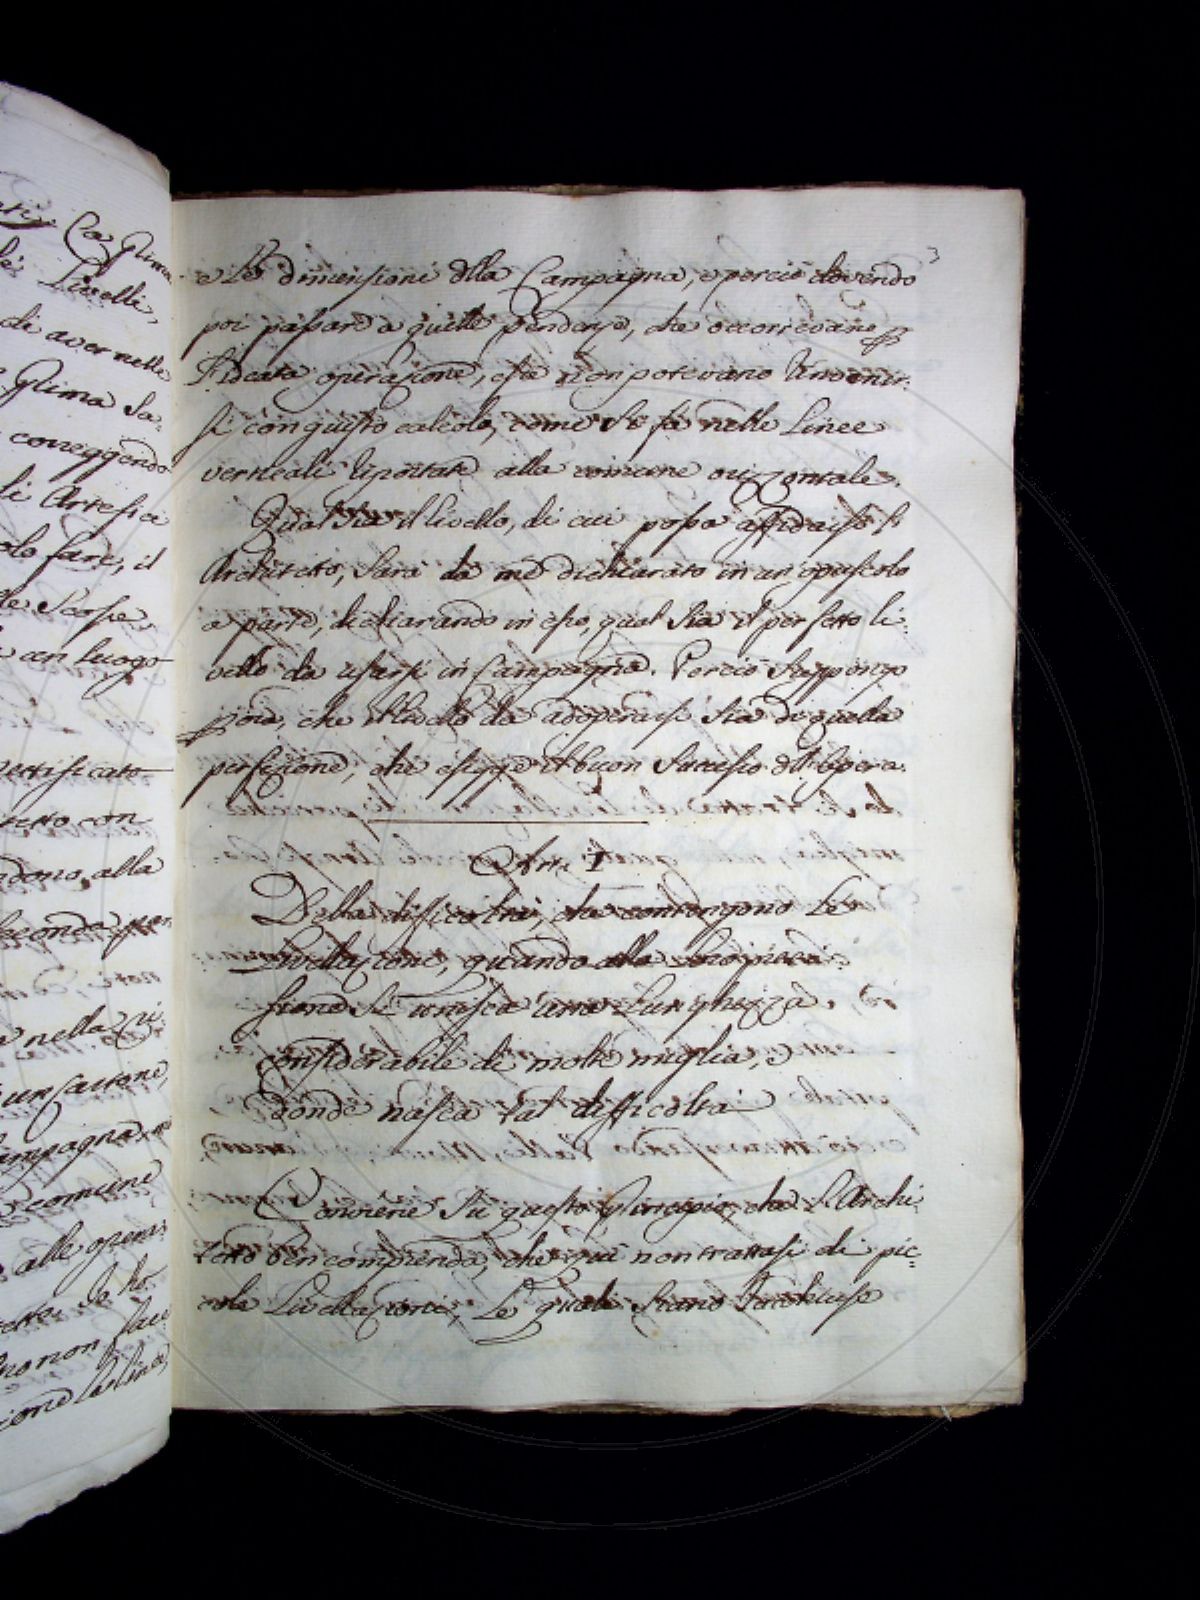 3
e le dimensioni della Campagna, e perciò dovendo
poi passare a quelle pendenze, che occorrevano p
l'ideata operazione, esse non potevano rinvenir-
si con giusto calcolo, come si fa nelle Linee
verticali riportate alla comune orizzontale.
Qual sia il livello, di cui possa affidarsi l'
Architetto, sarà da me dichiarato in un opuscolo
a parte, dichiarando in esso, qual sia il perfetto li-
vello da usarsi in Campagna. Perciò suppongo
p ora, che il livello da adoperarsi sia di quella
perfezione, che esigge il buon successo dell'opera.
Art. I
Della difficoltà, che contengono le
Livellazione, quando alla
sione si unisca una Lunghezza
considerabile di molte miglia, e
donde nasca tal difficoltà
Conviene su questo principio, che l'Archi-
tetto ben comprenda, che qui non trattasi di pic=
cole Livellazioni, le quali siano racchiuse
Livelli,
di aver nelle
prima sa-
correggendo
li Artefici
fare, il
Scosse,
un luogo
rettificato
con
alla
seconda
nella
un Cartone,
comune
alle
se ho
non